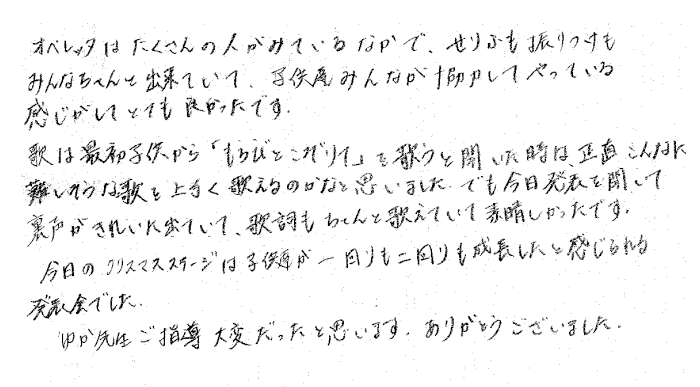 オペレッタはたくさんの人がみているなかで、せりふも振りつけも
みんなちゃんと出来ていて、子供達みんなが協力してやっている
感じがしてとても良かったです。
歌は最初子供から「もろびとこぞりて」を歌うと聞いた時は、正直こんなに
難しそうな歌を上手く歌えるのかなと思いました。でも今日発表を聞いて
裏声がきれいに出ていて、歌詞もちゃんと歌えていて素晴しかったです。
今日のクリスマスステージは子供達が一回りも二回りも成長したと感じられる
発表会でした。
ゆか先生ご指導大変だったと思います。ありがとうございました。